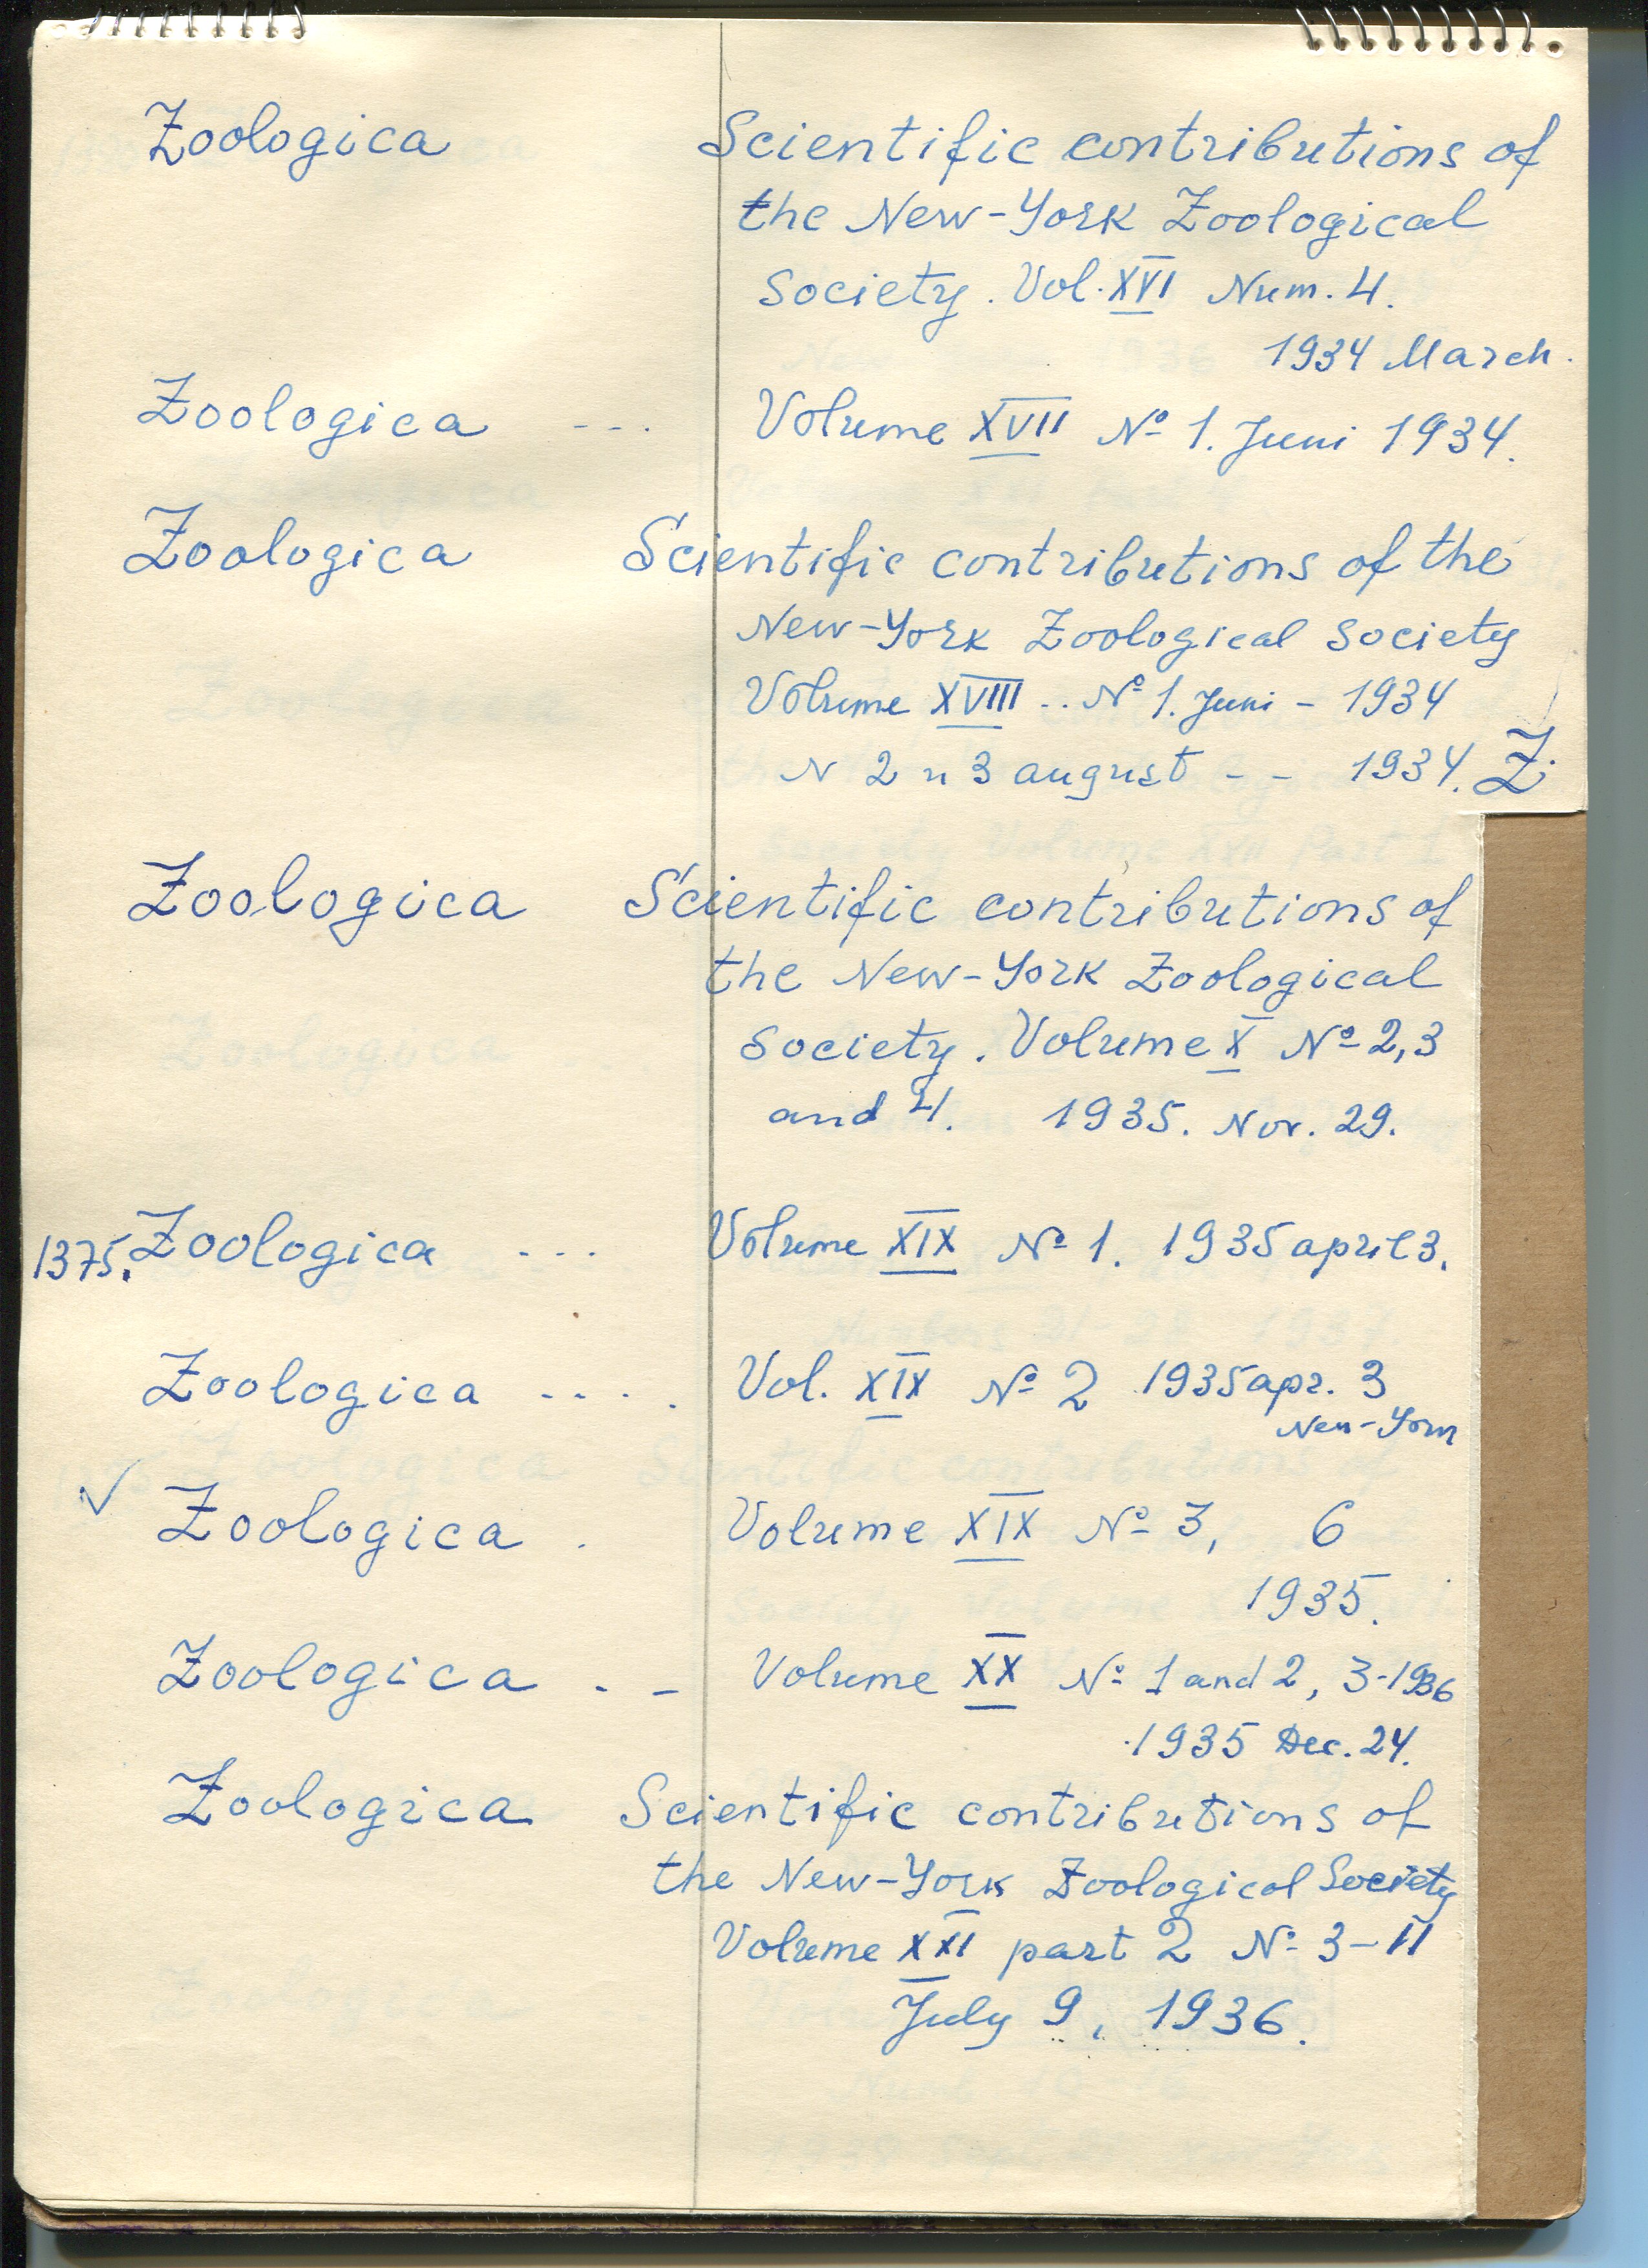 Zoologica Scientific contributions of
the New-York Zoological
Society. Vol. XVI Num. 4.
1934 March.
Zoologica --- Volume XVII № 1. Juni 1934.
Zoologica Scientific contributions of the
New-York Zoological Society
Volume XVIII .. № 1. Juni - 1934
N 2 и 3 august - - 1934. Z.
Zoologica Scientific contributions of
the New-York Zoological
Society. Volume X № 2,3
and 4. 1935. Nov. 29.
1375. Zoologica --- Volume XIX № 1. 1935 april 3.
Zoologica --- . Vol. XIX № 2 1935 apr. 3
New-York
✓ Zoologica . Volume XIX № 3, 6
1935.
Zoologica - - Volume XX № 1 and 2, 3-1936
1935 Dec. 24.
Zoologica Scientific contributions of
the New-York Zoological Society
Volume XXI part 2 № 3-11
July 9, 1936.